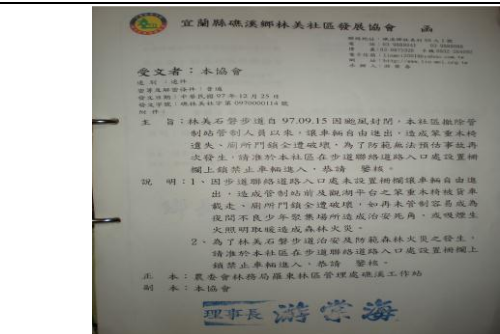 宜蘭縣礁溪鄉林美社區發展協會　函
受文者：本協會
速別：速件
密等及解密條件：普通
發文日期：中華民國97年12月25日
發文字號：礁林美社字第0970000114號
附件：
主　旨：林美石磐步道自97.09.15因颱風封閉，本社區撤除管
制站管制人員以來，讓車輛自由進出，造成笨重木椅
遺失、廁所門鎖全遭破壞，為了防範無法預估事故再
次發生，請准於本社區在步道聯絡道路入口處設置柵
欄上鎖禁止車輛進入，恭請　鑒核。
說　明：1、因步道聯絡道路入口處未設置柵欄讓車輛自由進
出，造成管制站前及觀湖平台之笨重木椅被貨車
載走、廁所門鎖全遭破壞，如再未管制容易成為
夜間不良少年聚集場所造成治安死角，或吸煙生
火照明取暖造成森林火災。
2、為了林美石磐步道治安及防範森林火災之發生，
請准於本社區在步道聯絡道路入口處設置柵欄上
鎖禁止車輛進入，恭請　鑒核。
正　本：農委會林務局羅東林區管理處礁溪工作站
副　本：本協會
理事長 游常海